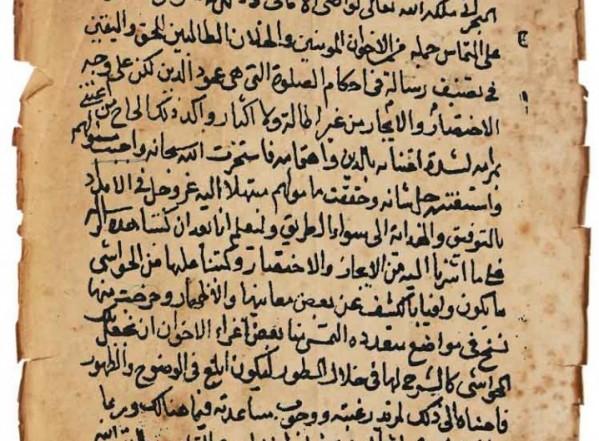 على التماس جملة من الاخوان المؤمنين والخلان الطالبين للحق واليقين
في تصنيف رسالة في احكام الصلوة التي هي عمود الدين لكن على وجه
الاختصار والايجاز من غير اطالة ولا اكثار واكد ذلك الحاح من
مرامه لشدة اعتنائه بالدين واهتمامه فاستخرت الله سبحانه واجبت
جل شانه وحققت ماموله مبتهلا اليه عز وجل في الامداد
بالتوفيق والهداية الى سواء الطريق ثم انا بعد ان كتبنا هذه
على ما اشرنا اليه من الايجاز والاختصار وكتبنا عليها من الحواشي
ما يكون وافيا بالكشف عن بعض معانيها والاظهار وخرجت منها
نسخ في مواضع متعددة التمس منا بعض اعزاء الاخوان ان نجعل تلك
الحواشي كالشرح لها في خلال السطور ليكون ابلغ في الوضوح والظهور
فاجبناه الى ذلك لمزيد رغبته ووجوب مساعدته فيما هنالك وربما